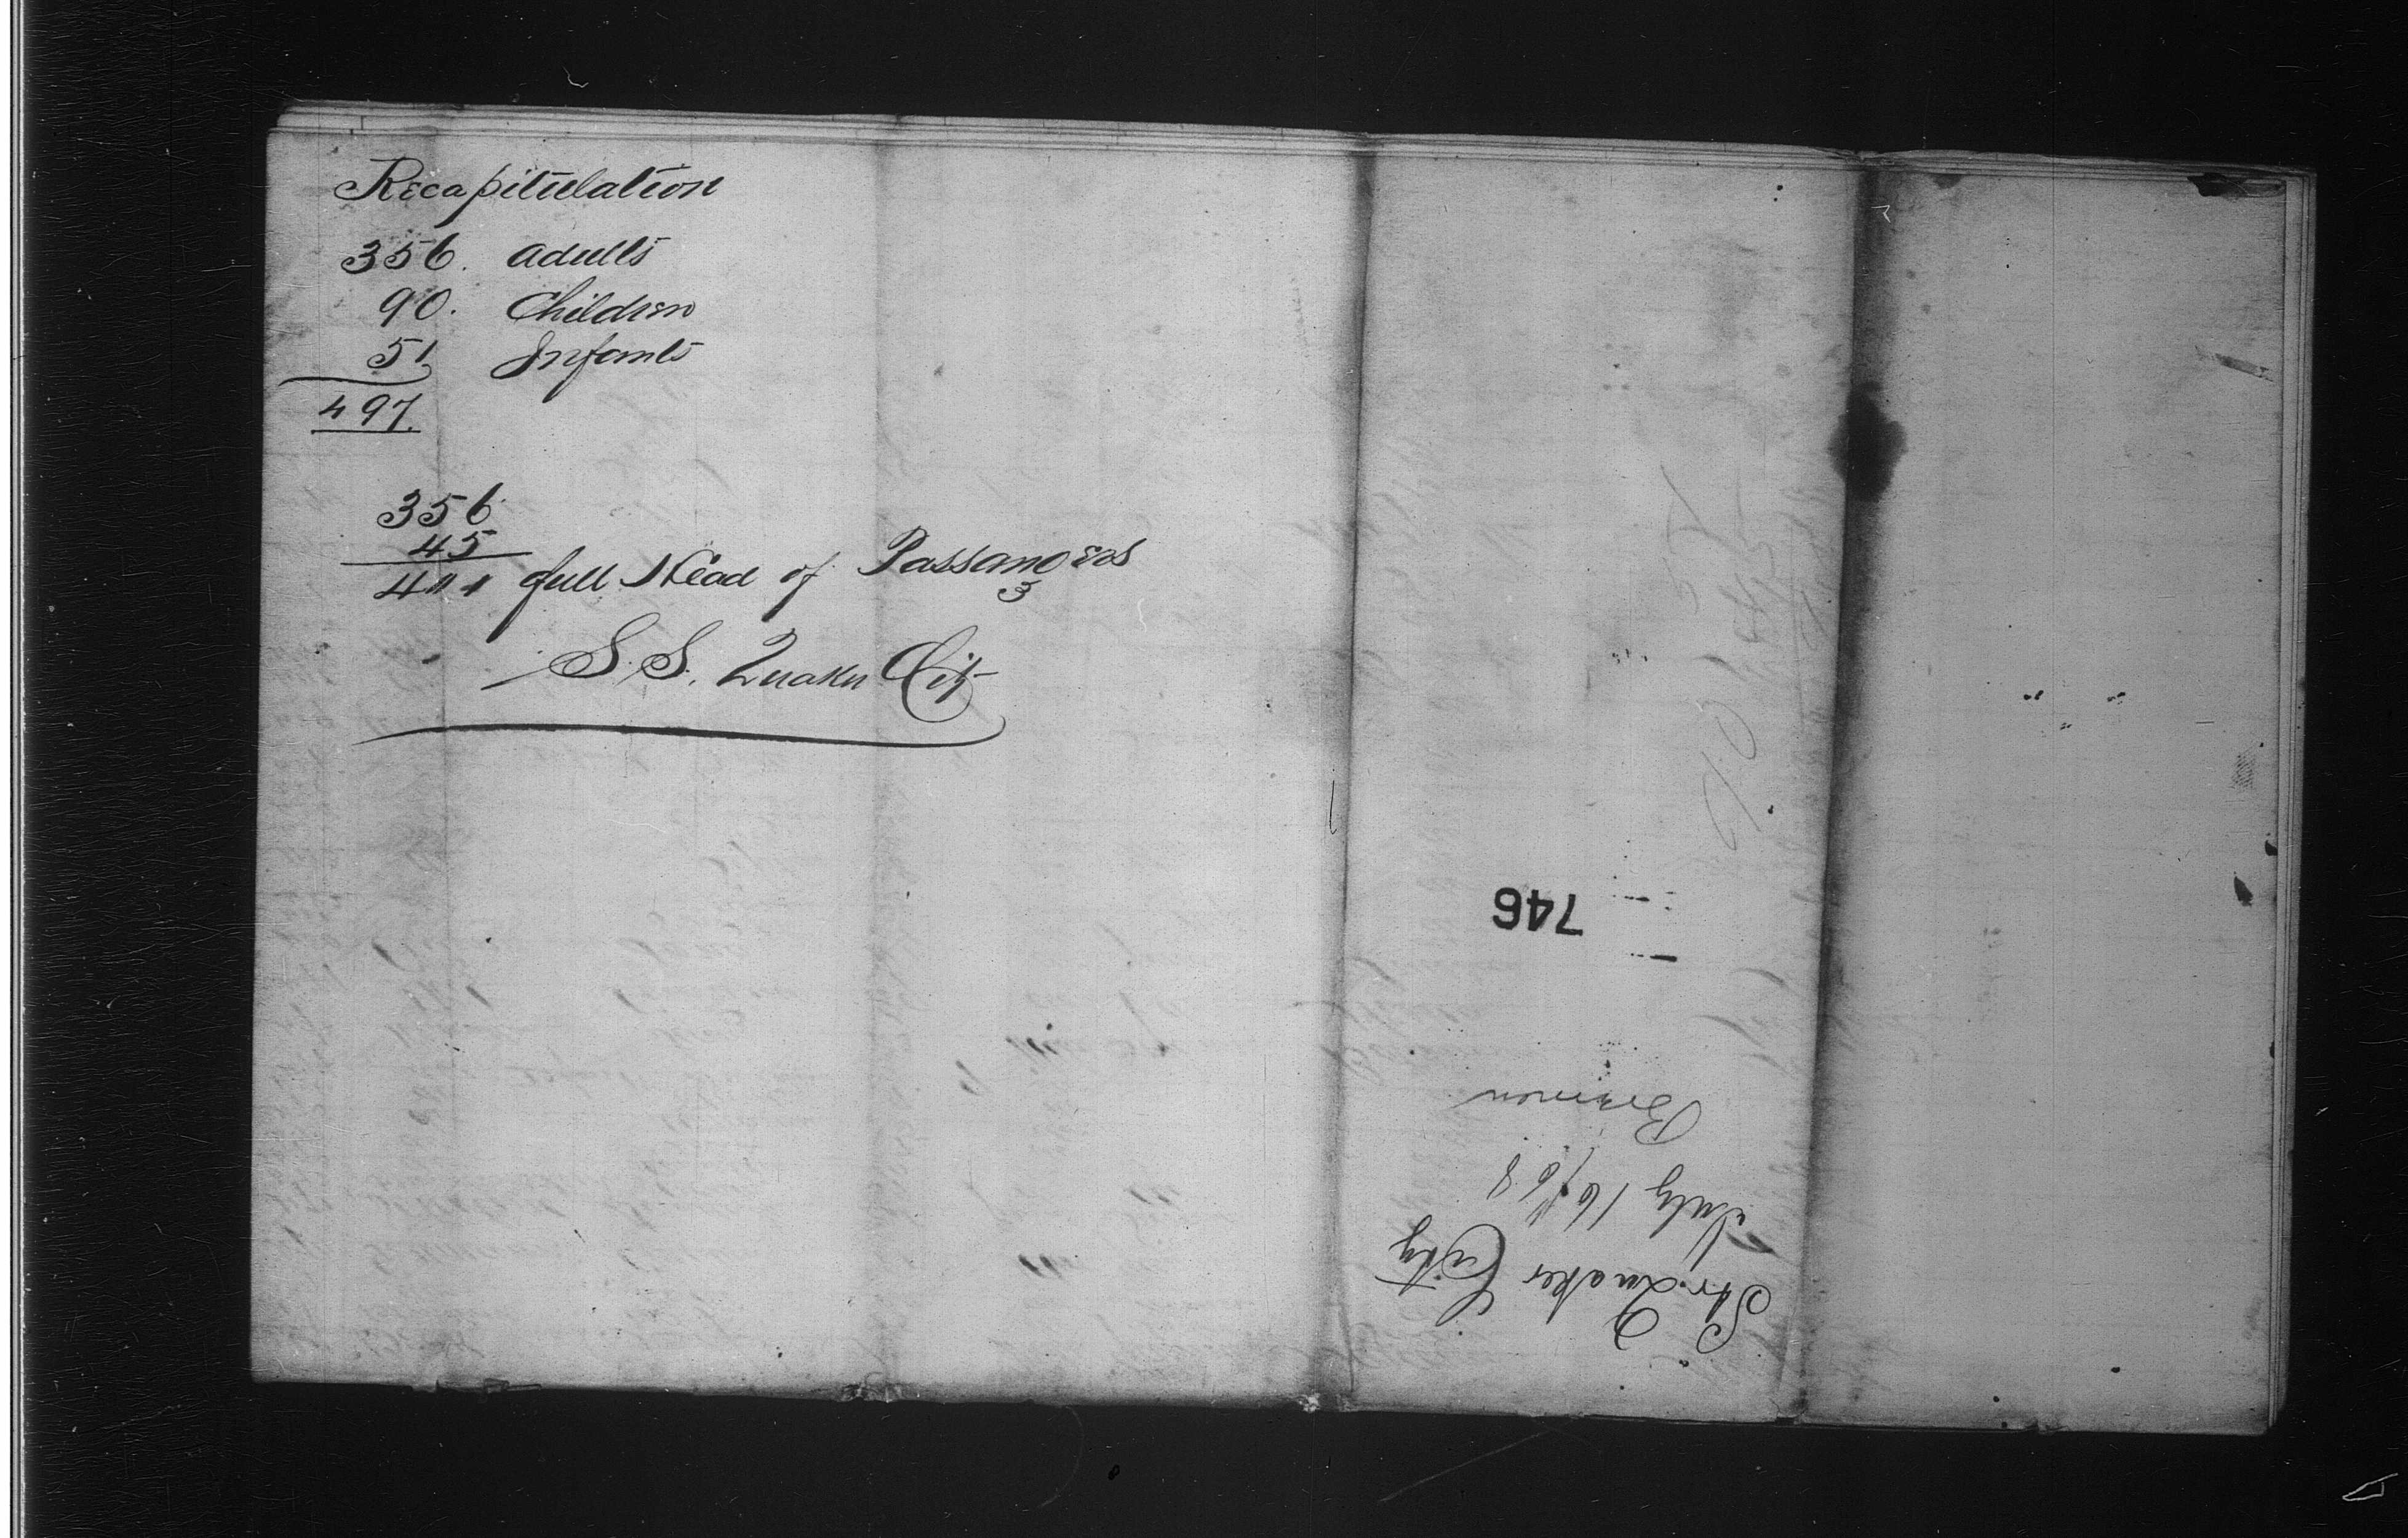 Recapitulation
356. Adults
90. Children
51 Infants
497.
356
45
401 full Head of Passengers
S.S. Quaker City
746
Str. Quaker City
July 16/68
Bremen